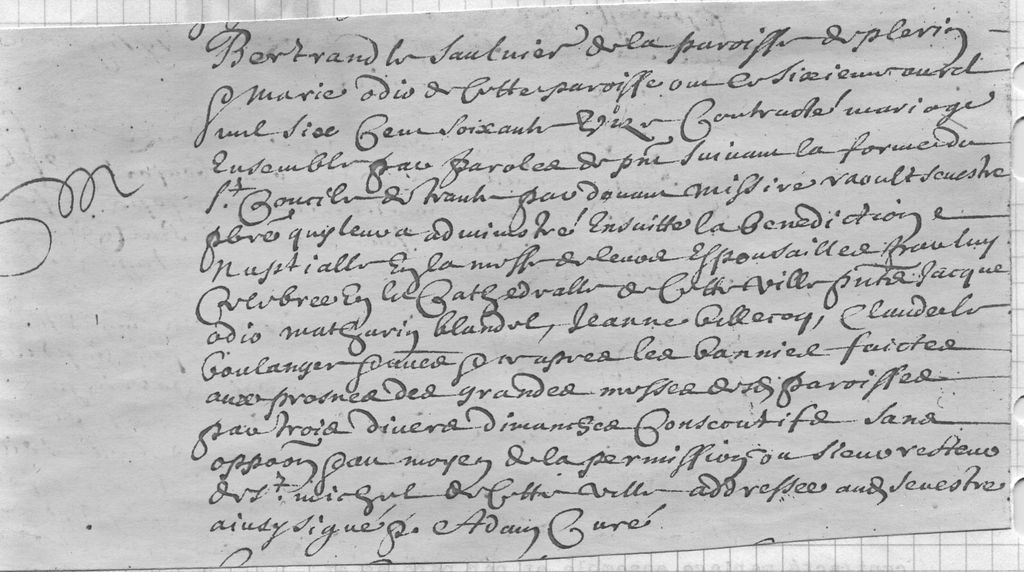 Bertrand le Saulnier de la paroisse de plerin
& Marie odio de Cette paroisse ont le Sixieme aourst
mil Six Cent Soixante Contracté mariage
Ensemble par parolles de pnt Suivant la forme du
St Concile de trante par davant Missire raoult Sevestre
pbre qui leur a administré Ensuitte la benediction
Nuptialle En la messe de leurs Espousailles par luy
Celebree En la Cathedralle de Cette ville pnts Jacque
odio mathurin blandel, Jeanne Gillecoq, Claude le
boulanger & aues & ce apres les bannies faictes
aux prosnes des grandes messes desd paroisses
par trois divers dimanches Consecutifs Sans
oppaon par moyen de la permission du Sieur recteur
de St michel de Cette ville addressee aud Sevestre
ainsy Signé p. Adam Curé